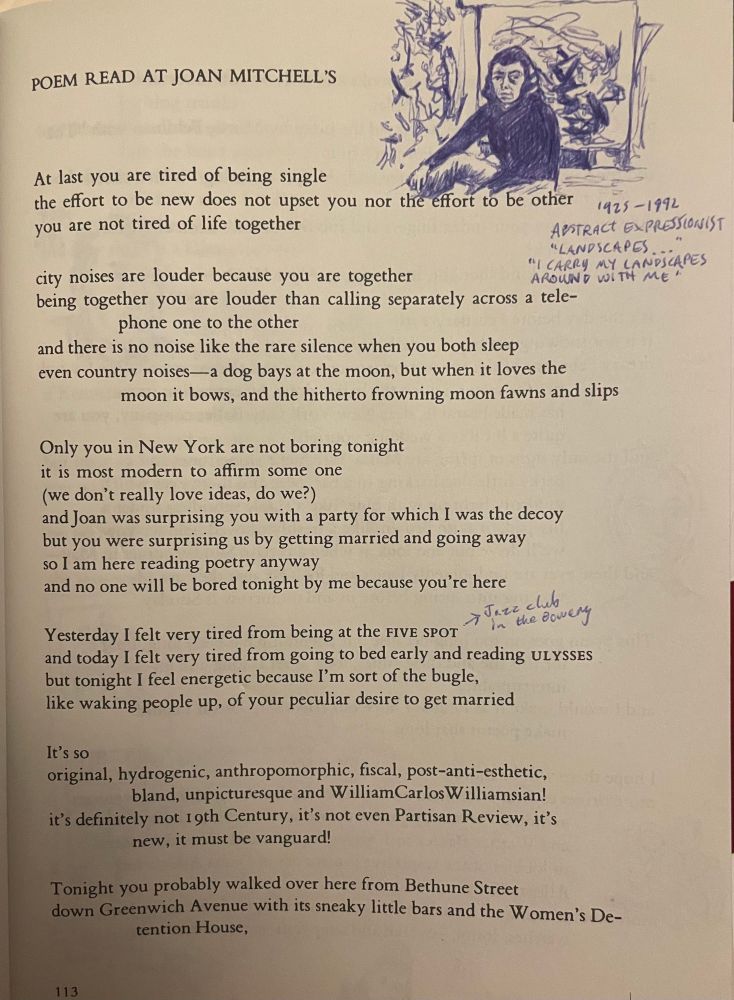 POEM READ AT JOAN MITCHELL'S
At last you are tired of being single
the effort to be new does not upset you nor the effort to be other
you are not tired of life together
1925-1992
ABSTRACT EXPRESSIONIST
"LANDSCAPES..."
"I CARRY MY LANDSCAPES
AROUND WITH ME"
city noises are louder because you are together
being together you are louder than calling separately across a tele-
phone one to the other
and there is no noise like the rare silence when you both sleep
even country noises—a dog bays at the moon, but when it loves the
moon it bows, and the hitherto frowning moon fawns and slips
Only you in New York are not boring tonight
it is most modern to affirm some one
(we don't really love ideas, do we?)
and Joan was surprising you with a party for which I was the decoy
but you were surprising us by getting married and going away
so I am here reading poetry anyway
and no one will be bored tonight by me because you're here
Yesterday I felt very tired from being at the FIVE SPOT
→ Jazz club
in the Bowery
and today I felt very tired from going to bed early and reading ULYSSES
but tonight I feel energetic because I'm sort of the bugle,
like waking people up, of your peculiar desire to get married
It's so
original, hydrogenic, anthropomorphic, fiscal, post-anti-esthetic,
bland, unpicturesque and WilliamCarlosWilliamsian!
it's definitely not 19th Century, it's not even Partisan Review, it's
new, it must be vanguard!
Tonight you probably walked over here from Bethune Street
down Greenwich Avenue with its sneaky little bars and the Women's De-
tention House,
113